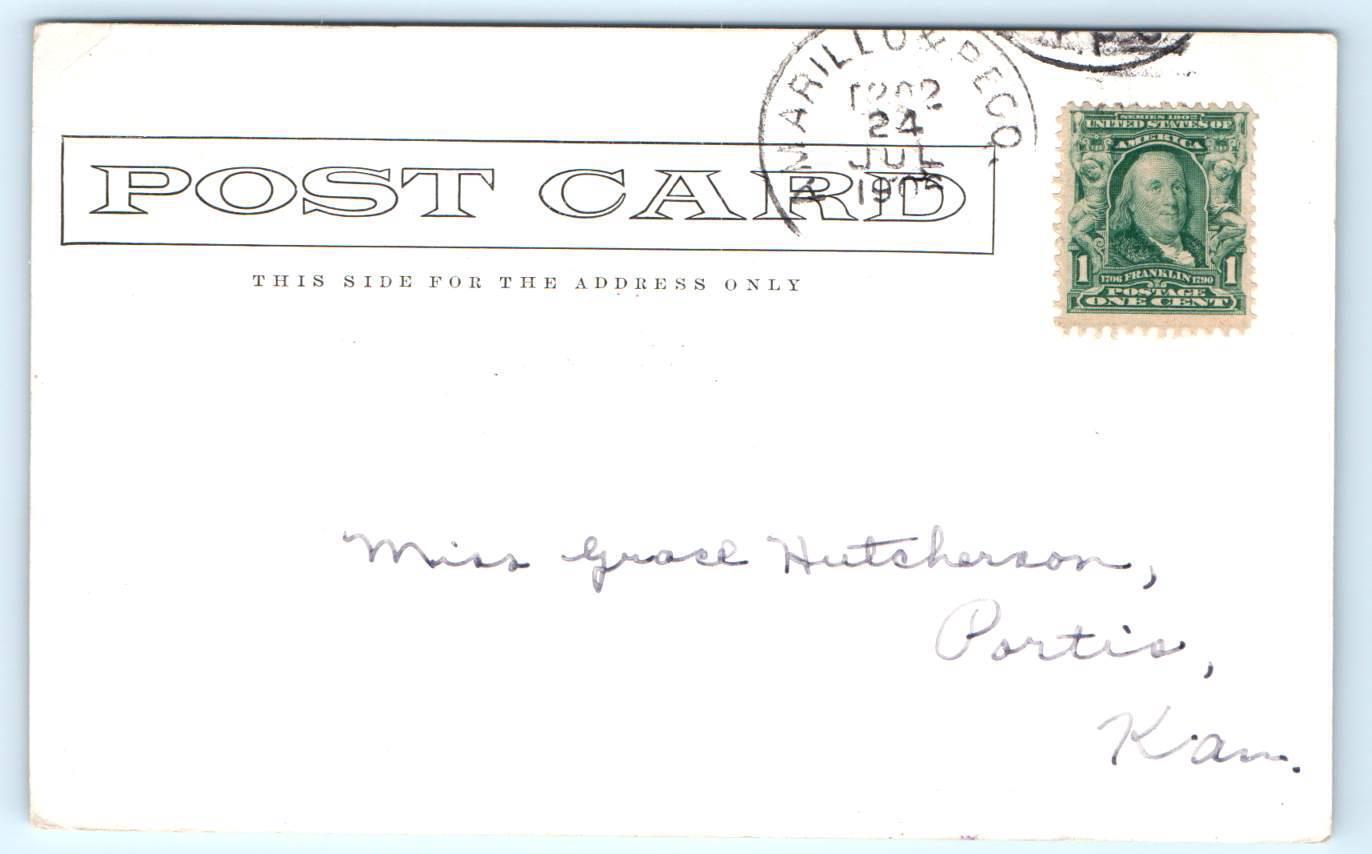 AMARILLO & PECO
24
JUL
1905
R.P.O
POST CARD
THIS SIDE FOR THE ADDRESS ONLY
SERIES 1902
UNITED STATES OF
AMERICA
1706 FRANKLIN 1790
1 POSTAGE 1
ONE CENT
Miss Grace Hutcherson,
Portis,
Kan.